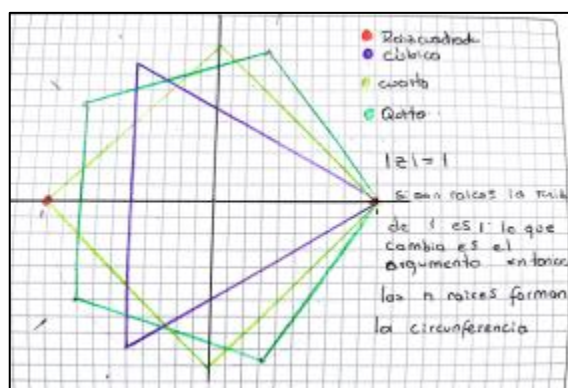 Raizcuadrada
cúbica
cuarta
Quita
|z| = 1
si son raices la
de 1 es 1 lo que
cambia es el
argumento entonces
las n raices forman
la circunferencia